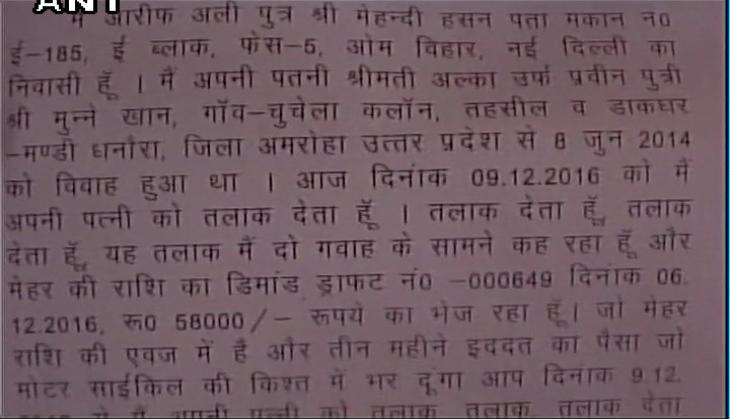 ANI
मैं आरीफ अली पुत्र श्री मेहन्दी हसन पता मकान न0
ई-185, ई ब्लाक, फेस-5, ओम विहार, नई दिल्ली का
निवासी हूँ । मैं अपनी पतनी श्रीमती अल्का उर्फ प्रवीन पुत्री
श्री मुन्ने खान, गाँव-चुचेला कलॉन, तहसील व डाकघर
-मण्डी धनौरा, जिला अमरोहा उत्तर प्रदेश से 8 जुन 2014
को विवाह हुआ था । आज दिनांक 09.12.2016 को मैं
अपनी पत्नी को तलाक देता हूँ । तलाक देता हूँ, तलाक
देता हूँ, यह तलाक मैं दो गवाह के सामने कह रहा हूँ और
मेहर की राशि का डिमांड ड्राफट नं0 -000649 दिनांक 06.
12.2016, रू0 58000/- रूपये का भेज रहा हूँ। जो मेहर
राशि की एवज में है और तीन महीने इददत का पैसा जो
मोटर साईकिल की किश्त में भर दूंगा आप दिनांक 9.12.
मैं अपनी पत्नी को तलाक तलाक, तलाक देता